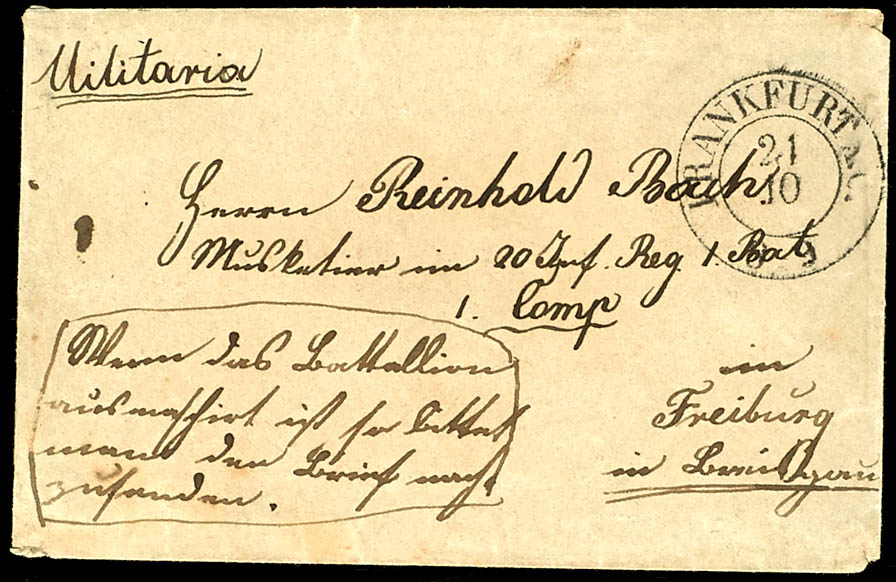 Militaria
FRANKFURT a. O.
21
10
Herrn Reinhold Bach
Musketier im 20 Inf. Reg. 1. Bat
1. Comp
in
Freiburg
in Breisgau
Wenn das Battallion
ausmaschirt ist so bittet
man den Brief nach
zusenden.